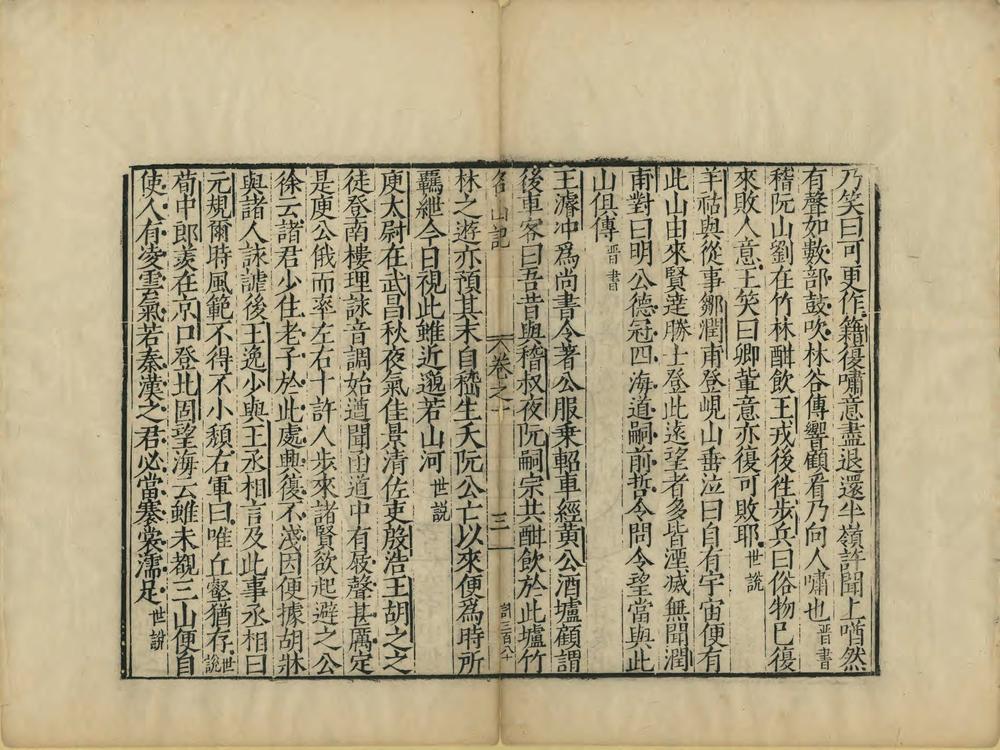 乃笑曰可更作籍復嘯意盡退還半嶺許聞上㗲然
有聲如數部鼓吹林谷傳響顧看乃向人嘯也晉書
稽阮山劉在竹林酣飲王戎後徃步兵曰俗物已復
來敗人意王笑曰卿軰意亦復可敗耶世說
羊祜與從事鄒潤甫登峴山垂泣曰自有宇宙便有
此山由來賢達勝士登此遠望者多皆湮滅無聞潤
甫對曰明公德冠四海道嗣前哲令問令望當與此
山俱傳晉書
王濬冲爲尚書令著公服乗軺車經黃公酒壚顧謂
後車客曰吾昔與稽叔夜阮嗣宗共酣飲於此壚竹
名山記 卷之一 三 計三百八十
林之遊亦預其末自嵆生夭阮公亡以來便爲時所
羈紲今日視此雖近邈若山河世說
庾太尉在武昌秋夜氣佳景清佐吏殷浩王胡之之
徒登南樓理詠音調始遒聞函道中有屐聲甚厲定
是庾公俄而率左右十許人步來諸賢欲起避之公
徐云諸君少住老子於此處興復不淺因便據胡牀
與諸人詠謔後王逸少與王丞相言及此事丞相曰
元規爾時風範不得不小頹右軍曰唯丘壑猶存世說
荀中郎羨在京口登北固望海云雖未覩三山便自
使人有凌雲氣若秦漢之君必當褰裳濡足世說